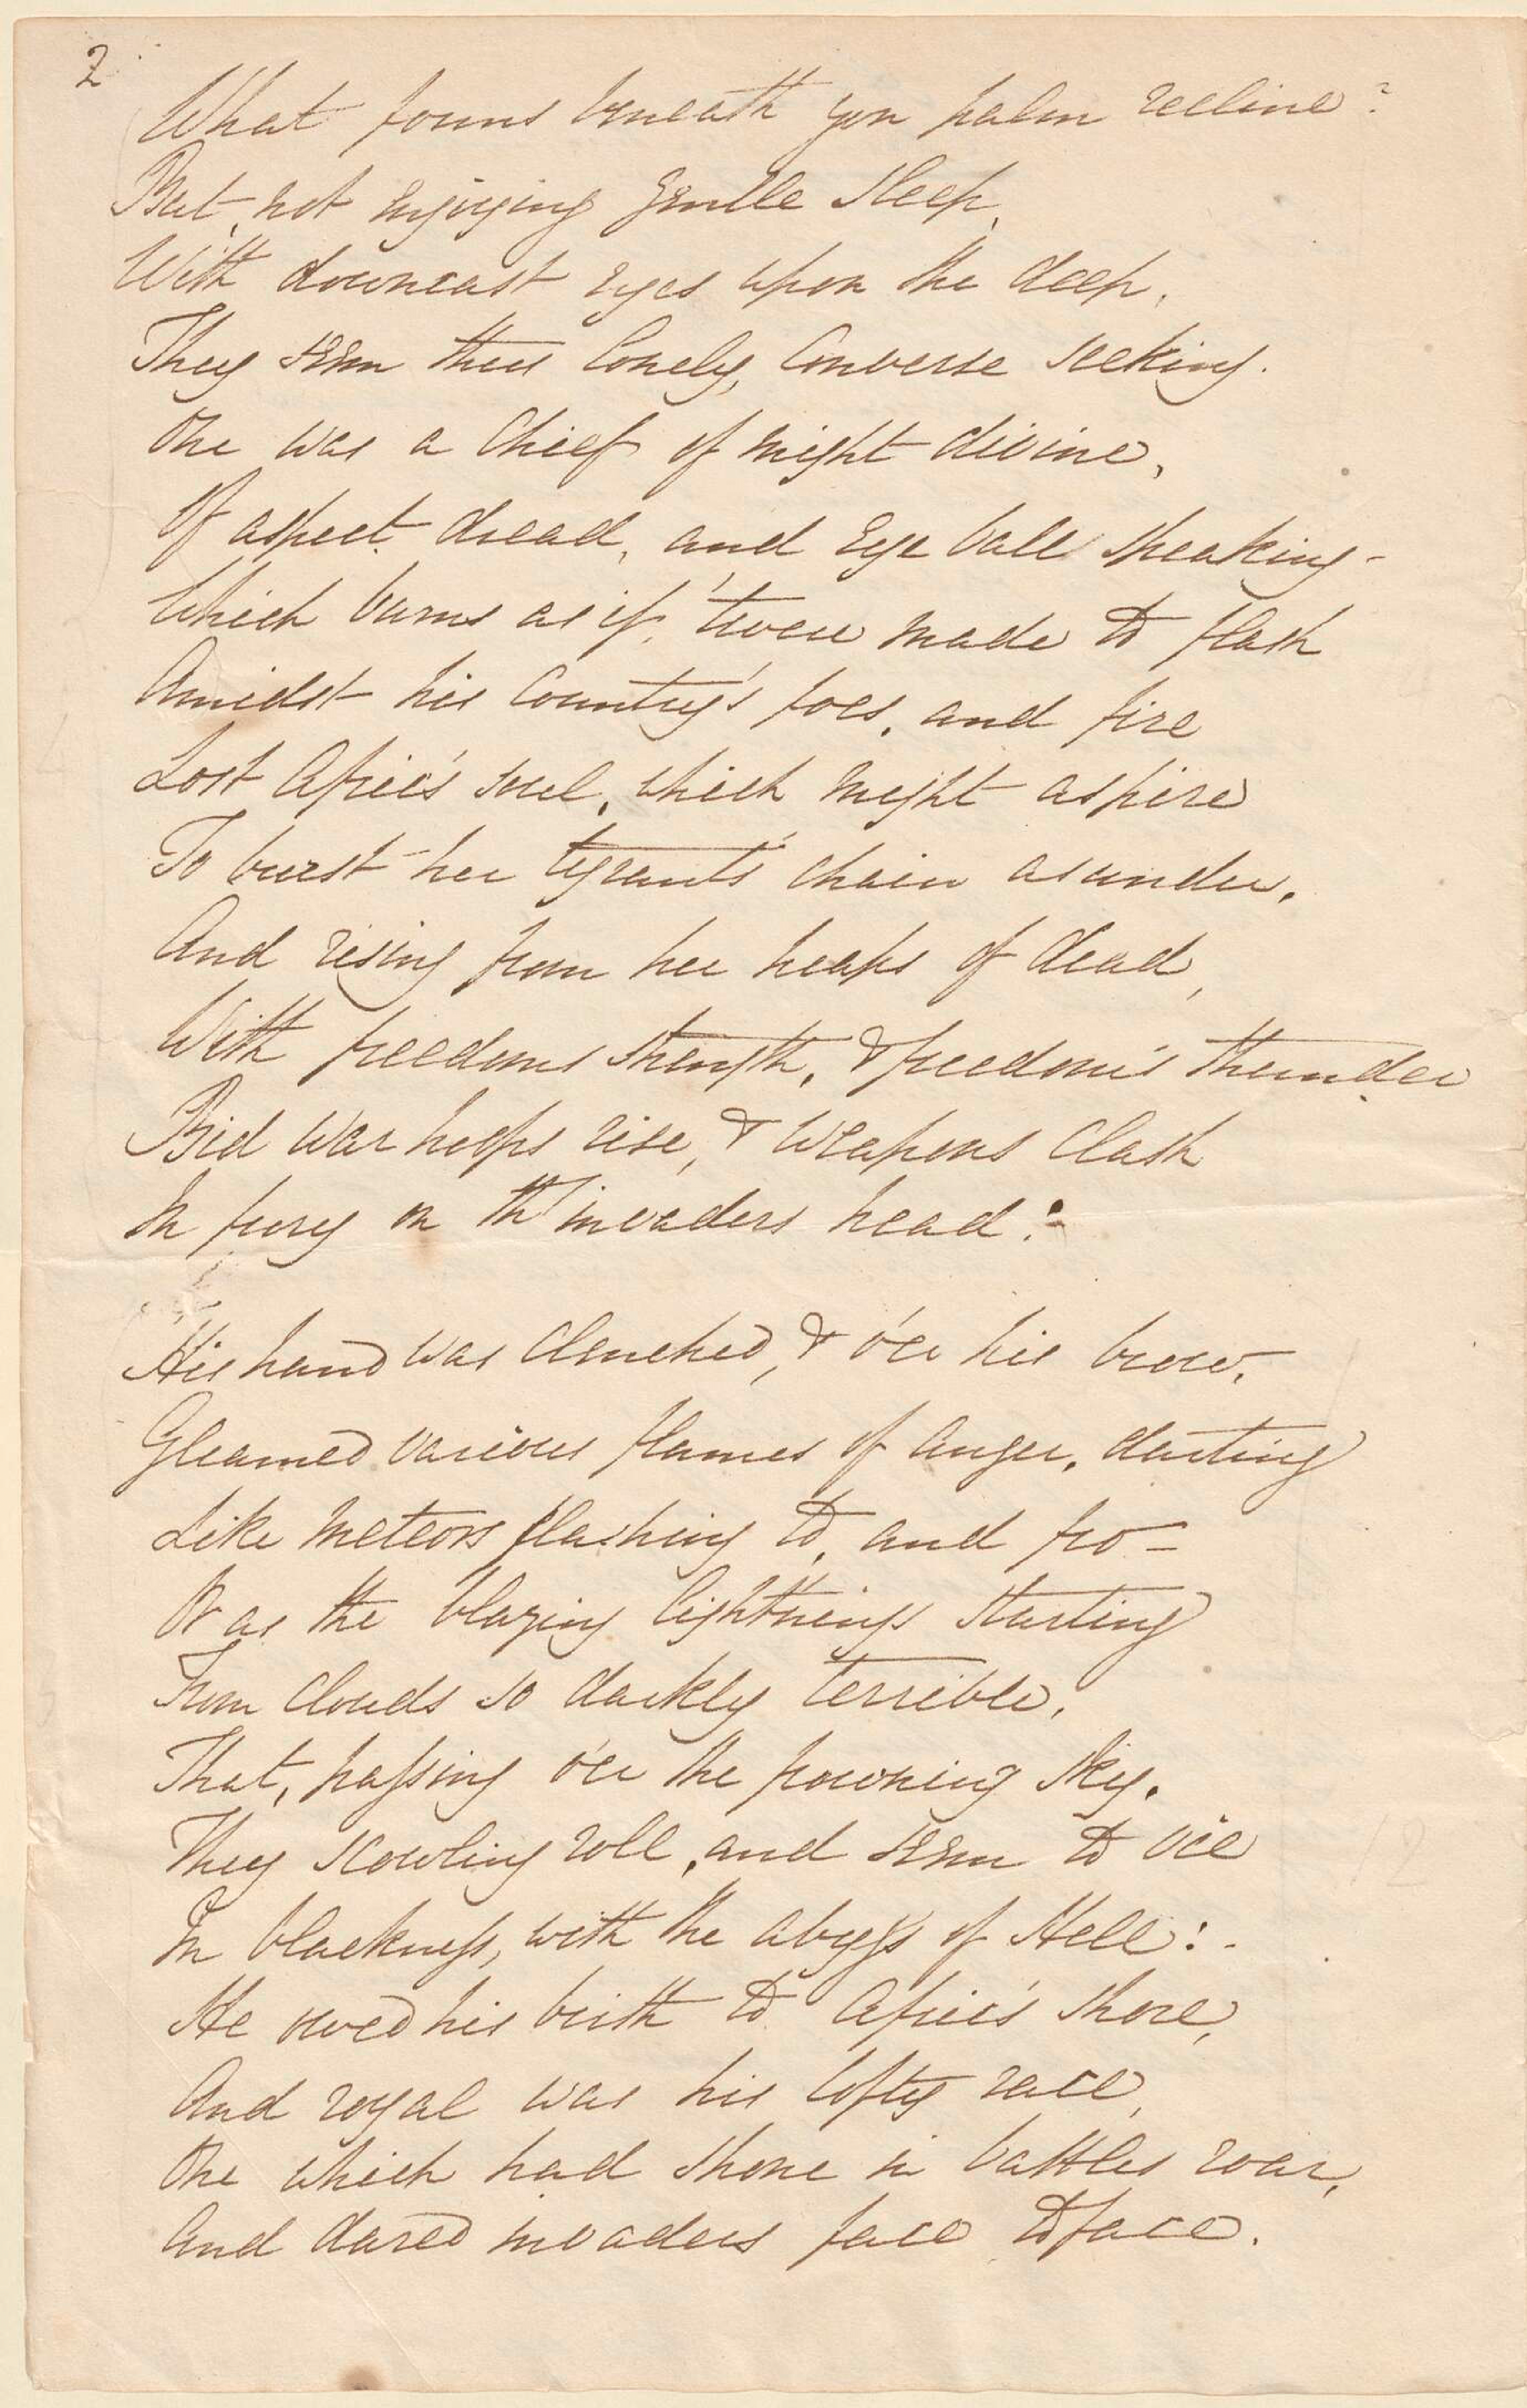 2
What forms beneath yon palm recline?
But, not enjoying gentle sleep,
With downcast eyes upon the deep,
They seem their lonely, converse seeking.
One was a chief of might divine,
Of aspect dread, and eye ball speaking—
Which burns as if, 'twere made to flash
Amidst his country's foes, and fire
Lost Afric's soul, which might aspire
To burst her tyrant's chain asunder,
And rising from her heaps of dead,
With freedoms strength, & freedom's thunder
Bid war hoops rise, & weapons clash
In fury on th' invaders head:
His hand was clenched, & o'er his brow,
Gleamed various flames of anger, darting
Like meteors flashing to, and fro—
Or as the blazing lightnings starting
From clouds so darkly terrible,
That, passing o'er the frowning sky,
They scowling roll, and seem to vie
In blackness, with the abyss of Hell:-
He owed his birth to Afric's shore,
And royal was his lofty race,
One which had shone in battles roar,
And dared invaders face to face.
12